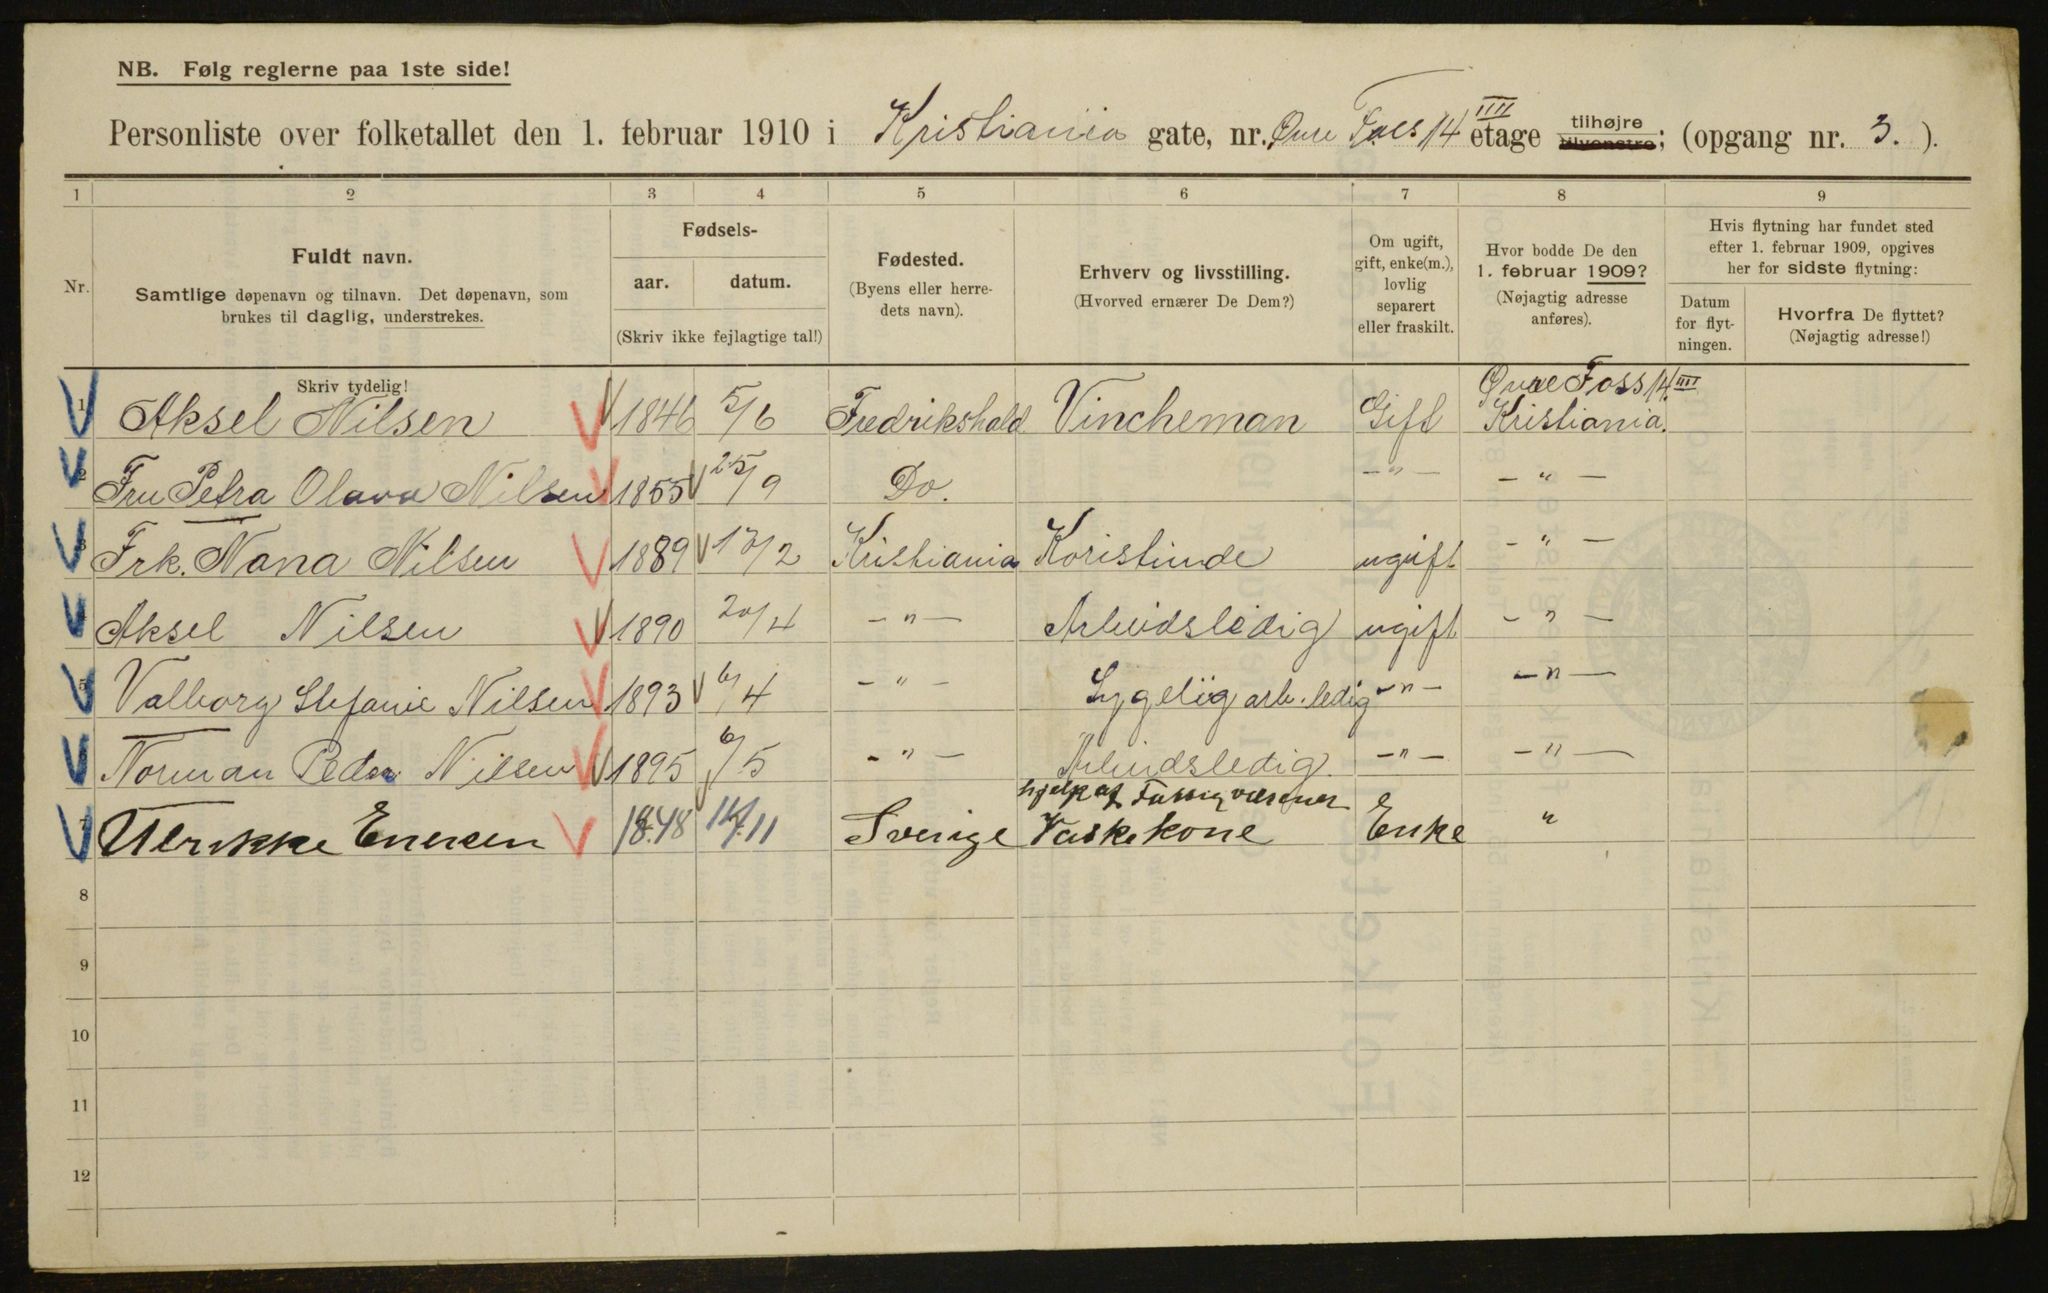 NB. Følg reglerne paa 1ste side!
Personliste over folketallet den 1. februar 1910 i Kristiania gate, nr. Øvre Foss 14 IIII etage tilhøjre tilvenstre; (opgang nr. 3. ).
1 2 3 4 5 6 7 8 9
Nr.
Fuldt navn.
Samtlige døpenavn og tilnavn. Det døpenavn, som
brukes til daglig, understrekes.
Fødsels-
aar. datum.
(Skriv ikke fejlagtige tal!)
Fødested.
(Byens eller herre-
dets navn).
Erhverv og livsstilling.
(Hvorved ernærer De Dem?)
Om ugift,
gift, enke(m.),
lovlig
separert
eller fraskilt.
Hvor bodde De den
1. februar 1909?
(Nøjagtig adresse
anføres).
Hvis flytning har fundet sted
efter 1. februar 1909, opgives
her for sidste flytning:
Datum
for flyt-
ningen.
Hvorfra De flyttet?
(Nøjagtig adresse!)
Skriv tydelig!
Øvre Foss 14 IIII
1 Aksel Nilsen 1846 5/6 Fredrikshald Vincheman Gift Kristiania.
2 Fru Petra Olava Nilsen 1855 25/9 Do. -"- - " -
3 Frk. Nana Nilsen 1889 13/2 Kristiania Koristinde ugift - " -
Aksel Nilsen 1890 20/4 - " - Arbeidsledig ugift - " -
5 Valborg Stefanie Nilsen 1893 6/4 - " - Sygelig arb. ledig -"- -"-
Norman Peder Nilsen 1895 6/5 - " - Arbeidsledig. -"- -"-
hjelp af Fattigvæsenet
7 Ulrikke Enersen 1848 14/11 Sverige Vaskekone Enke "
8
9
10
11
12